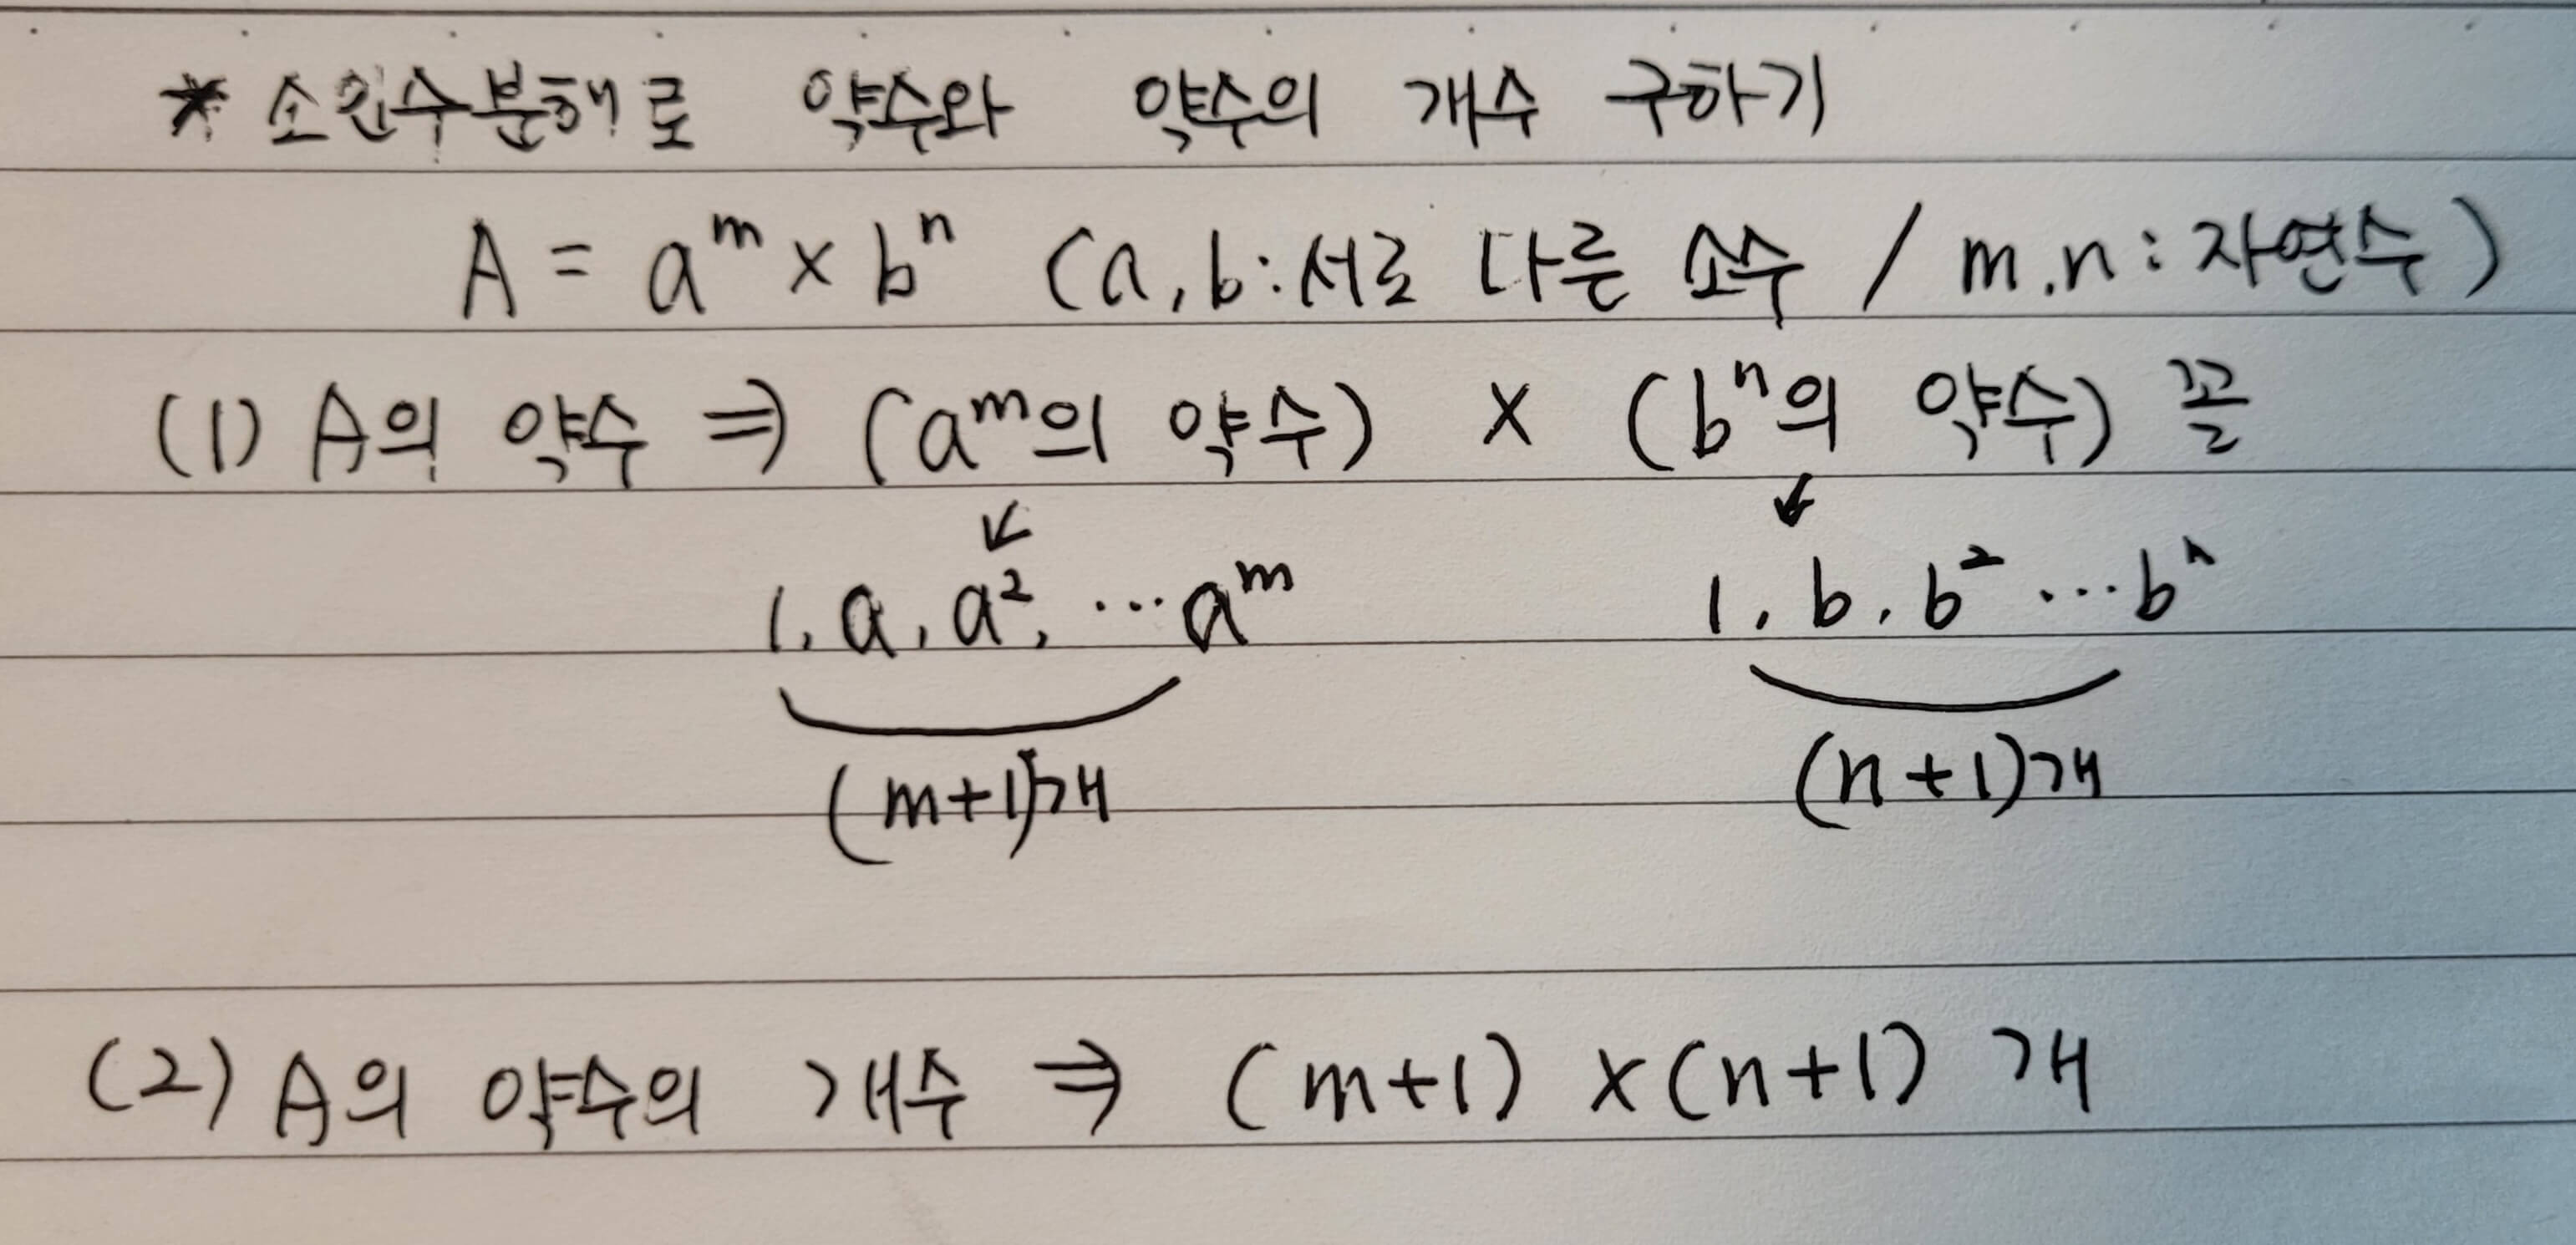 * 소인수분해로 약수와 약수의 개수 구하기
A = aᵐ × bⁿ (a, b : 서로 다른 소수 / m.n : 자연수)
(1) A의 약수 ⇒ (aᵐ의 약수) × (bⁿ의 약수) 꼴
↙ ↙
1, a, a², ⋯ aᵐ 1, b, b² ⋯ bⁿ
(m+1)개 (n+1)개
(2) A의 약수의 개수 ⇒ (m+1) × (n+1) 개